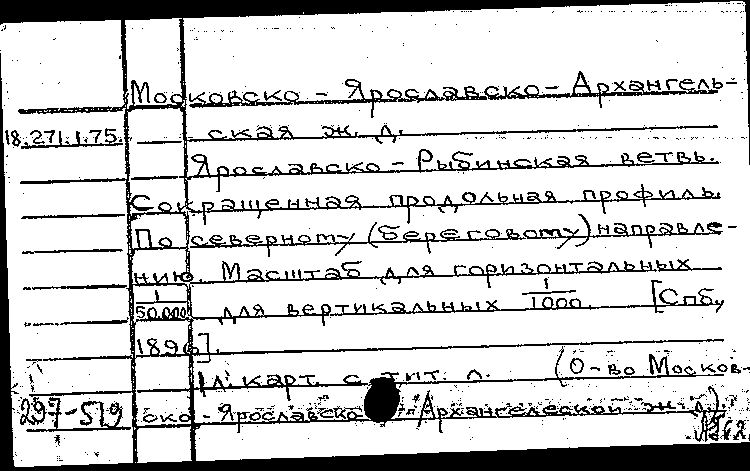 Московско - Ярославско - Архангель-
18.271.1.75. ская ж. д.
Ярославско - Рыбинская ветвь.
Сокращенная продольная профиль.
По северному (береговому) направле-
нию. Масштаб для горизонтальных
1/50.000 для вертикальных 1/1000. [Спб.,
1896].
1 л. карт. с тит. л. (О-во Москов-
297-519 ско - Ярославско - Архангельской ж. д.).